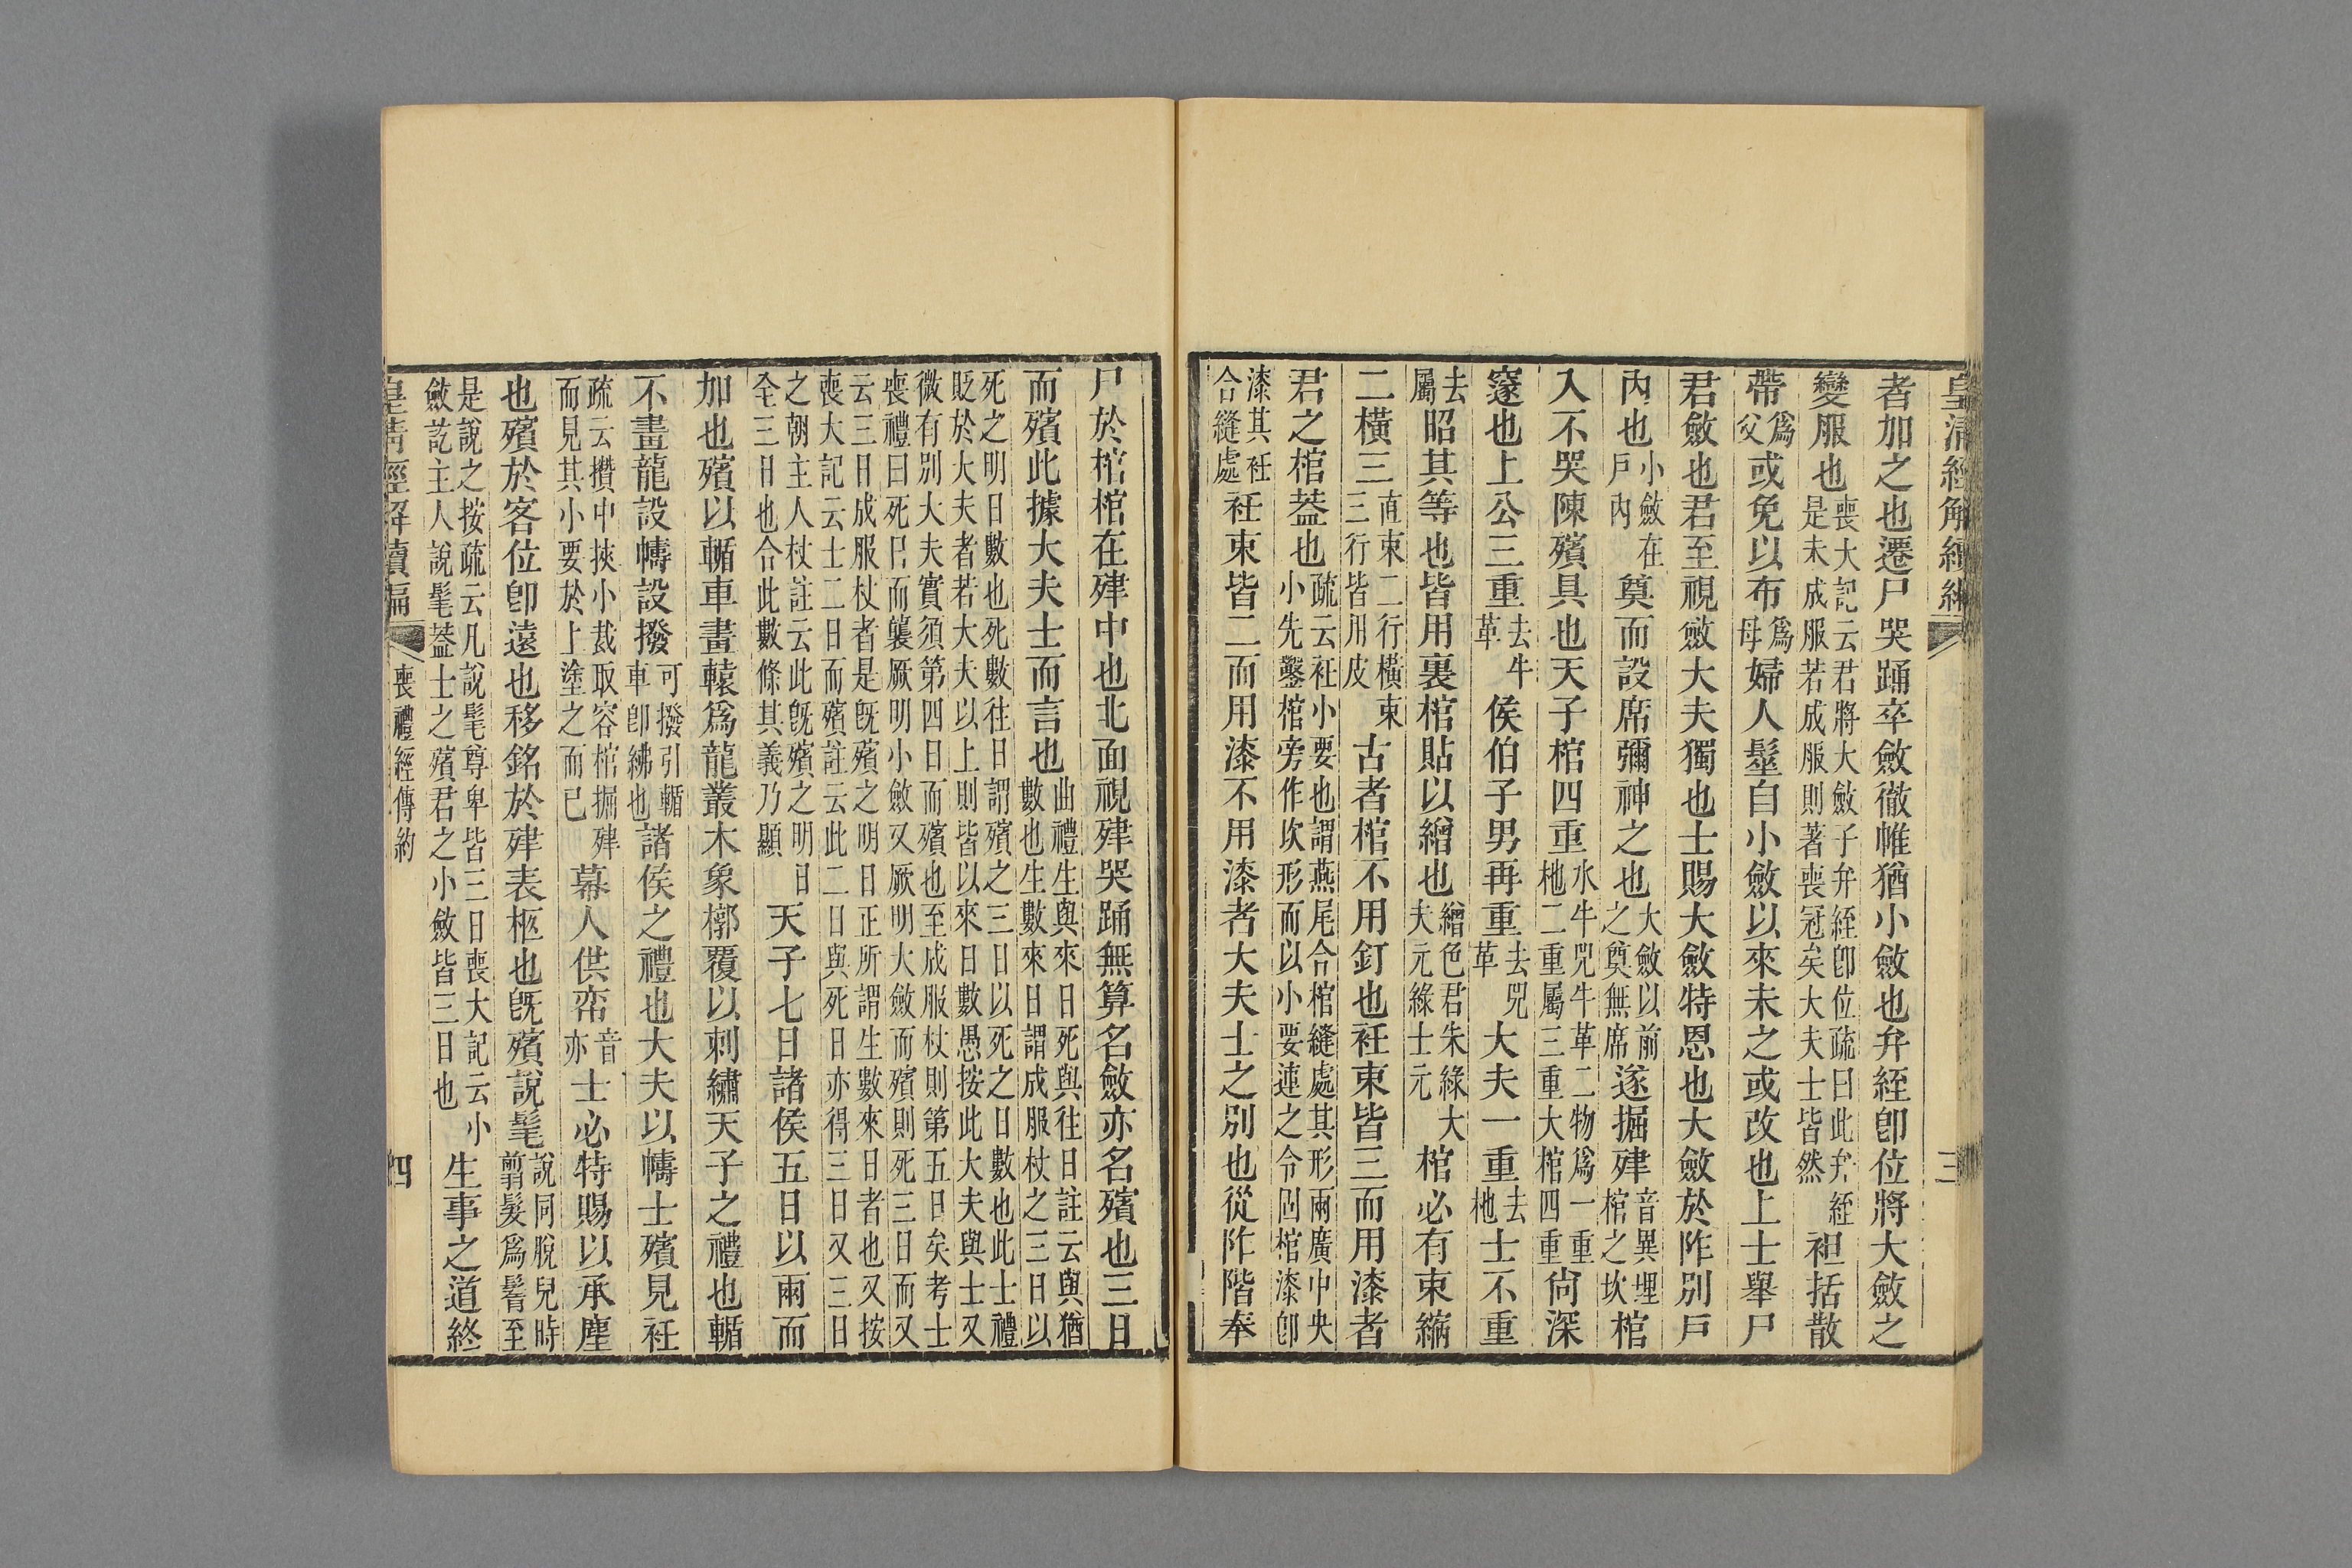 皇清經解續編 三
者加之也遷尸哭踊卒斂徹帷猶小斂也弁絰卽位將大斂之
變服也喪大記云君將大斂子弁絰卽位疏曰此弁絰是未成服若成服則著喪冠矣大夫士皆然袒括散
帶爲父或免以布爲母婦人髽自小斂以來未之或改也上士舉尸
君斂也君至視斂大夫獨也士賜大斂特恩也大斂於阼別戶
內也小斂在戶內奠而設席彌神之也大斂以前之奠無席遂掘肂音異埋棺之坎棺
入不哭陳殯具也天子棺四重水牛兕牛革二物爲一重杝二重屬三重大棺四重尙深
邃也上公三重去牛革侯伯子男再重去兕革大夫一重去杝士不重
去屬昭其等也皆用裏棺貼以繒也繒色君朱綠大夫元綠士元棺必有束縮
二橫三直束二行橫束三行皆用皮古者棺不用釘也衽束皆三而用漆者
君之棺葢也疏云衽小要也謂燕尾合棺縫處其形兩廣中央小先鑿棺旁作坎形而以小要連之令固棺漆卽
漆其衽合縫處衽束皆二而用漆不用漆者大夫士之別也從阼階奉
尸於棺棺在肂中也北面視肂哭踊無算名斂亦名殯也三日
而殯此據大夫士而言也曲禮生與來日死與往日註云與猶數也生數來日謂成服杖之三日以
死之明日數也死數往日謂殯之三日以死之日數也此士禮貶於大夫者若大夫以上則皆以來日數愚按此大夫與士又
微有別大夫實須第四日而殯也至成服杖則第五日矣考士喪禮曰死日而襲厥明小斂又厥明大斂而殯則死三日而又
云三日成服杖者是旣殯之明日正所謂生數來日者也又按喪大記云士二日而殯註云此二日與死日亦得三日又三日
之朝主人杖註云此旣殯之明日全三日也合此數條其義乃顯天子七日諸侯五日以兩而
加也殯以輴車畫轅爲龍叢木象槨覆以刺繡天子之禮也輴
不畫龍設幬設撥可撥引輴車卽紼也諸侯之禮也大夫以幬士殯見衽
疏云攢中狹小裁取容棺掘肂而見其小要於上塗之而已幕人供帟音亦士必特賜以承塵
也殯於客位卽遠也移銘於肂表柩也旣殯說髦說同脫兒時翦髮爲鬌至
是說之按疏云凡說髦尊卑皆三日喪大記云小斂訖主人說髦葢士之殯君之小斂皆三日也生事之道終
皇清經解續編 喪禮經傳約 四